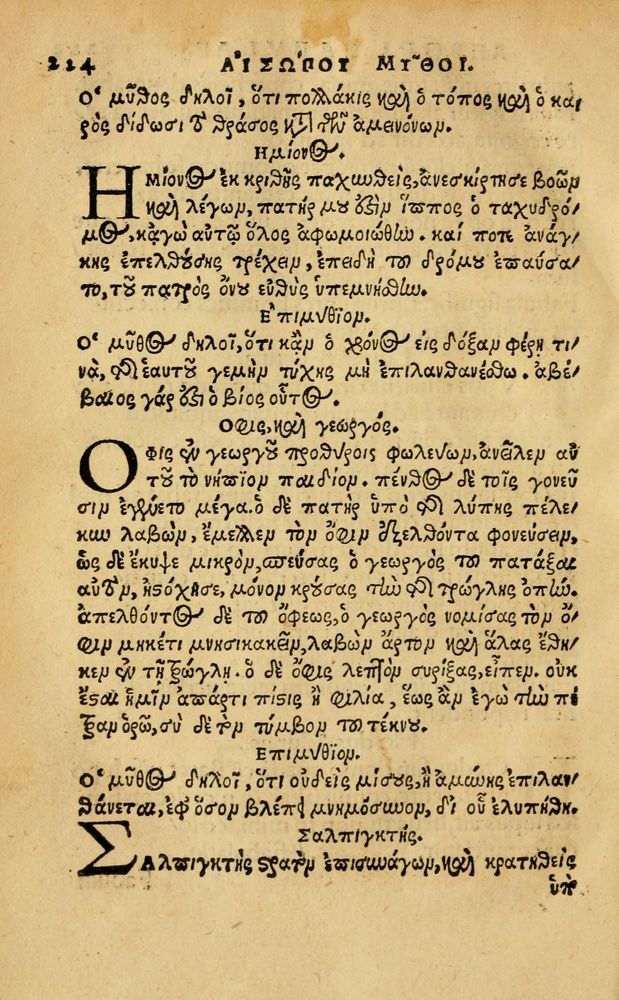 224 ΑἸΣΩΠΟΥ ΜΥ͂ΘΟΙ.
Ο῾ μῦθος δηλοῖ, ὅτι πολλάκις καὶ ὁ τόπος καὶ ὁ και
ρὸς δίδωσι τὸ θράσος κατὰ τῶν ἀμεινόνων.
Ἡμίονος.
ΗΜίονος ἐκ κριθῆς παχυνθεὶς, ἀνεσκίρτησε βοῶν
καὶ λέγων, πατήρ μου ἐστὶν ἵππος ὁ ταχυδρό/
μος, κᾀγὼ αὐτῷ ὅλος ἀφωμοιώθην. καί ποτε ἀνάγ/
κης ἐπελθούσης τρέχειν, ἐπειδὴ τοῦ δρόμου ἐπαύσα/
το, τοῦ πατρὸς ὄνου εὐθὺς ὑπεμνήσθην.
Ἐπιμύθιον.
Ο῾ μῦθος δηλοῖ, ὅτι κᾂν ὁ χρόνος εἰς δόξαν φέρῃ τι/
νὰ, τῆς ἑαυτοῦ γεμὴν τύχης μὴ ἐπιλανθανέσθω. ἀβέ/
βαιος γάρ ἐστι ὁ βίος οὗτος.
Ὄφις, καὶ γεωργός.
ΟΦις ἐν γεωργοῦ προθύροις φωλεύων, ἀνεῖλεν αὐ
τοῦ τὸ νήπιον παιδίον. πένθος δὲ τοῖς γονεῦ
σιν ἐγένετο μέγα. ὁ δὲ πατὴρ ὑπὸ τῆς λύπης πέλε/
κυν λαβὼν, ἔμελλεν τὸν ὄφιν ἐξελθόντα φονεύσειν,
ὡς δὲ ἔκυψε μικρὸν, σπεύσας ὁ γεωργὸς τοῦ πατάξαι
αὐτὸν, ἠστόχησε, μόνον κρούσας τὴν τῆς τρώγλης ὀπήν.
ἀπελθόντος δὲ τοῦ ὄφεως, ὁ γεωργὸς νομίσας τὸν ὄ/
φιν μηκέτι μνησικακεῖν, λαβὼν ἄρτον καὶ ἅλας ἔθη/
κεν ἐν τῇ τρώγλῃ. ὁ δὲ ὄφις λεπτὸν συρίξας, εἶπεν. οὐκ
ἔσται ἡμῖν ἀπάρτι πίστις ἢ φιλία, ἕως ἂν ἐγὼ τὴν πέ
τραν ὁρῶ, σὺ δὲ τὸν τύμβον τοῦ τέκνου.
Ἐπιμύθιον.
Ο῾ μῦθος δηλοῖ, ὅτι οὐδεὶς μίσους, ἢ ἀμύνης ἐπιλαν/
θάνεται, ἐφ᾽ ὅσον βλέπει μνημόσυνον, δι᾽ οὗ ἐλυπήθη.
Σαλπιγκτής.
ΣΑλπιγκτὴς στρατὸν ἐπισυνάγων, καὶ κρατηθεὶς
ὑπὸ